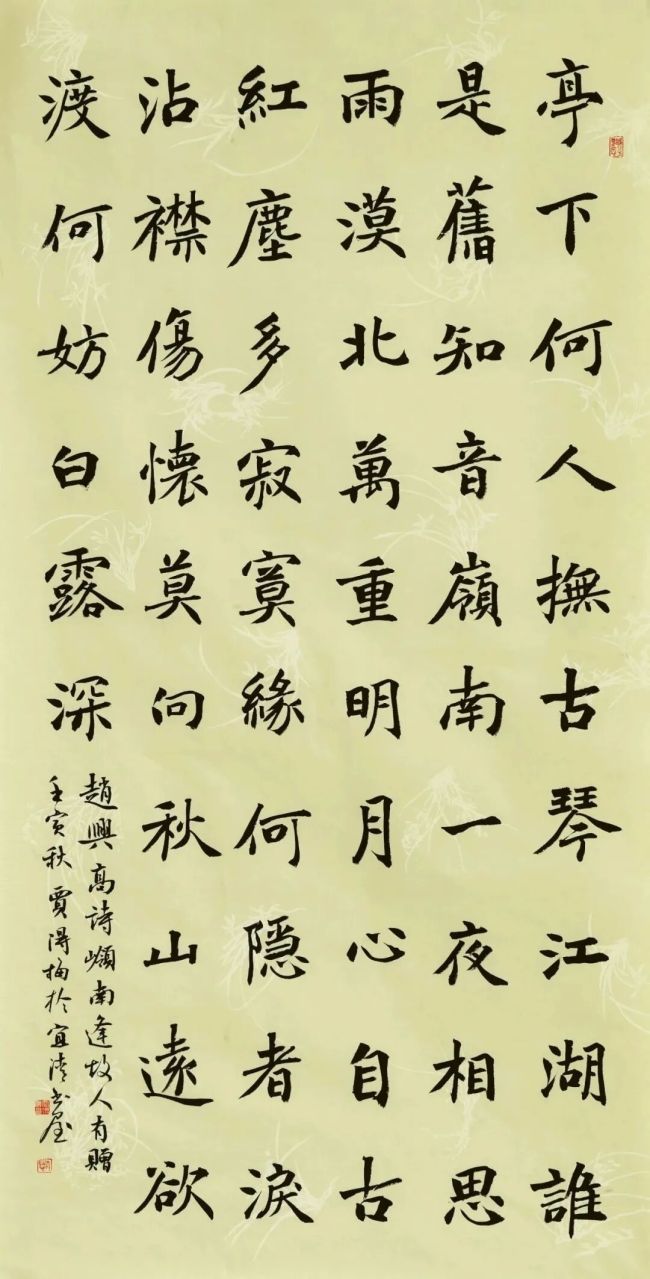 亭下何人撫古琴江湖誰
是舊知音嶺南一夜相思
雨漠北萬重明月心自古
紅塵多寂寞緣何隱者淚
沾襟傷懷莫问秋山遠欲
渡何妨白露深
趙興高詩嶺南逢故人有贈
壬寅秋賈得梅於宜清书屋